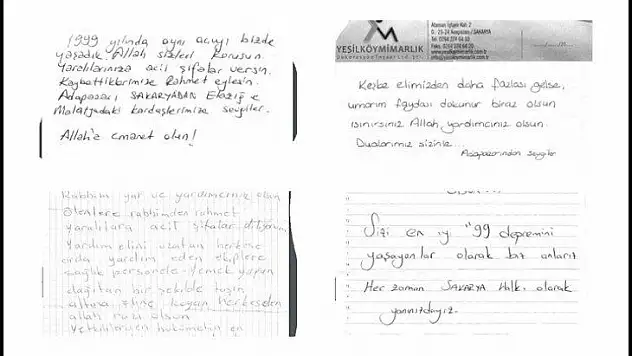 1999 yılında aynı acıyı bizde
yaşadık. Allah sizleri korusun.
Yaralılarınıza acil şifalar versin.
Kaybettiklerimize Rahmet eylesin.
Adapazarı SAKARYADAN Elazığ ve
Malatyadaki kardeşlerimize sevgiler.
Allah'a emanet olun!
YEŞİLKÖYMİMARLIK
Keşke elimizden daha fazlası gelse,
umarım faydası dokunur biraz olsun
ısınırsınız Allah yardımcınız olsun.
Dualarımız sizinle...
Adapazarından sevgiler
Rabbim yar ve yardımcınız olsun
ölenlere rabbimden rahmet
yaralılara acil şifalar diliyorum
Yardım elini uzatan herkese
orda yardım eden ekiplere
sağlık personele yemek yapıp
dağıtan bir şekilde taşın
altına elini koyan herkesden
allah razı olsun
Sizi en iyi "99 depremini
yaşayanlar olarak biz anlarız
Her zaman SAKARYA Halkı olarak
yanınızdayız.